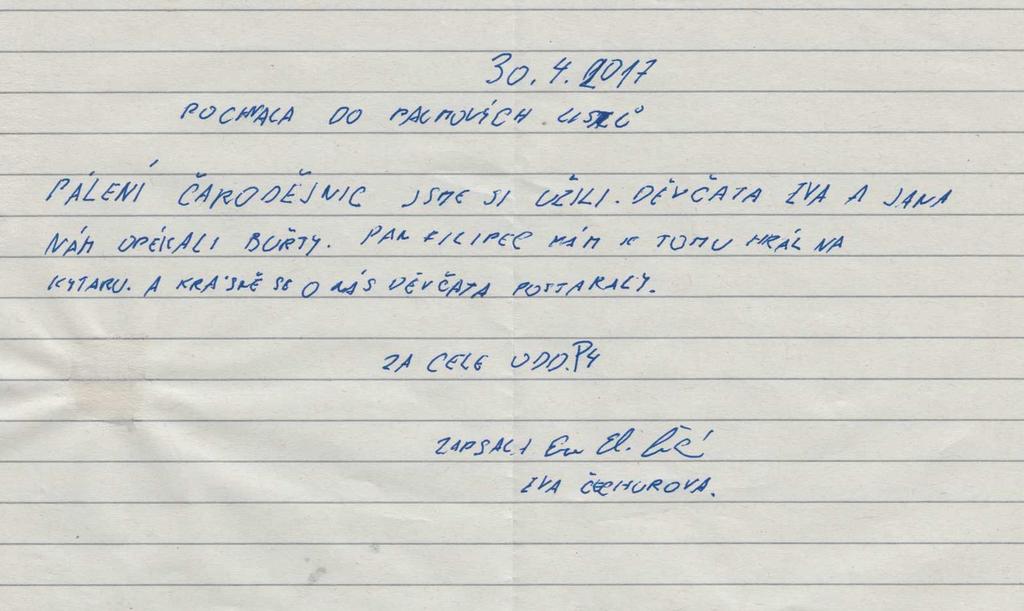 30.4.2017
POCHVALA DO PALMOVÝCH LISTŮ
PÁLENÍ ČARODĚJNIC JSME SI UŽILI. DĚVČATA IVA A JANA
NÁM OPÉKALI BUŘTY. PAN FILIPEC NÁM K TOMU HRÁL NA
KYTARU. A KRÁSNĚ SE O NÁS DĚVČATA POSTARALY.
ZA CELE ODD.P4
ZAPSALI
IVA ČECHUROVA.